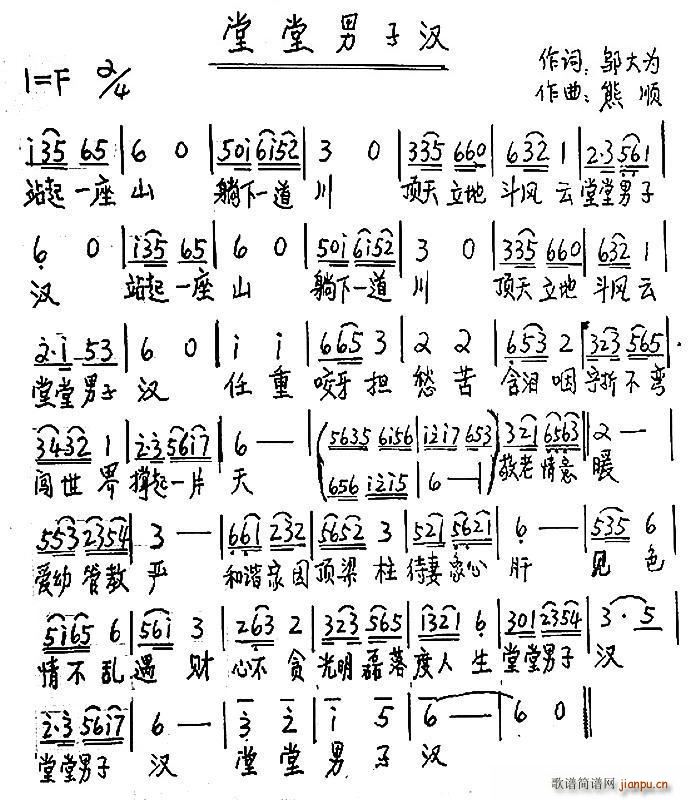 堂堂男子汉
1=F 2/4
作词：邬大为
作曲：熊顺
i35 65 | 6 0 | 50i 6i52 | 3 0 | 335 660 | 632 1 | 2·3 561 |
站起一座山 躺下一道川 顶天立地斗风云堂堂男子
6 0 | i35 65 | 6 0 | 50i 6i52 | 3 0 | 335 660 | 632 1 |
汉 站起一座山 躺下一道川 顶天立地斗风云
2·i 53 | 6 0 | i i | 665 3 | 2 2 | 653 2 | 323 565 |
堂堂男子汉 任重咬牙担愁苦含泪咽宁折不弯
3432 1 | 2·3 56i7 | 6 — | (5635 6i56 | i2i7 653 | 321 6563 || 2 — |
656 i2i5 | 6 — )
闯世界撑起一片天 敬老情意暖
553 2354 | 3 — | 661 232 | 5652 3 | 521 5621 | 6 — | 535 6 |
爱幼管教严 和谐家园顶梁柱待妻家心肝 见色
5i65 6 | 56i 3 | 263 2 | 323 565 | 1321 6 | 301 2354 | 3· 5 |
情不乱遇财心不贪光明磊落度人生堂堂男子汉
2·3 56i7 | 6 — | 3 2 | i 5 | 6 — | 6 0 ||
堂堂男子汉 堂堂男子汉
歌谱简谱网
jianpu.cn